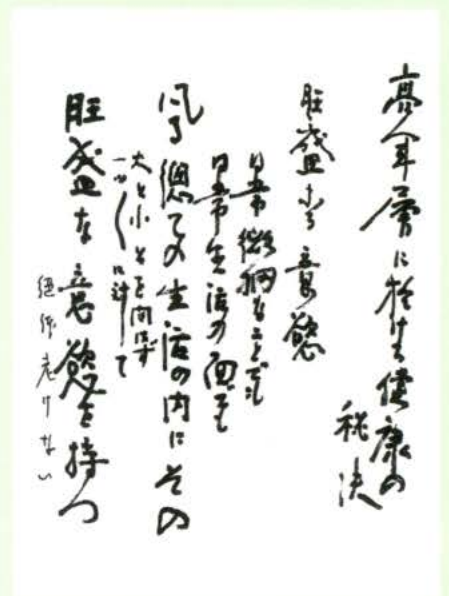 高令年層に於ける健康の
秘决
旺盛なる意慾
日常微細なことでも
日常生活の面でも
凡る総ての生活の内にその
大と小とを問はず
一つ一つに対して
旺盛な意慾を持つ
絶体老けない